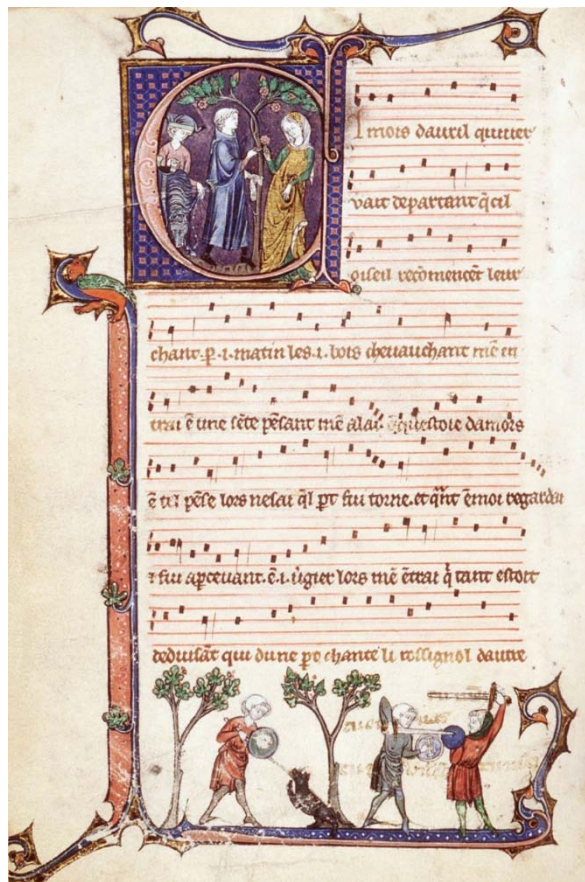 El mois dauril quiuier
vait departant q̃cil
oiseil recōmencēt leur
chant. p. i. matin les. i. bois cheuauchant mē en
trai ē une sēte pēsant mē alai questoie damors
ē tel pēse lors nesai q̃l pt fui torne. et qñt ēmoi regardai
⁊ fui apceuant. ē. i. ũgier lors mē ētrai q̃ tant estoit
deduisãt qui dune po chante li rossignol dautre